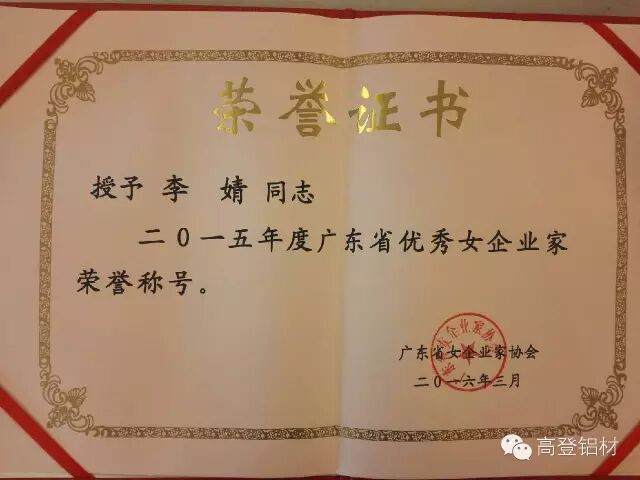 荣誉证书
授予 李 婧 同志
二〇一五年度广东省优秀女企业家
荣誉称号。
广东省女企业家协会
二〇一六年三月
高登铝材